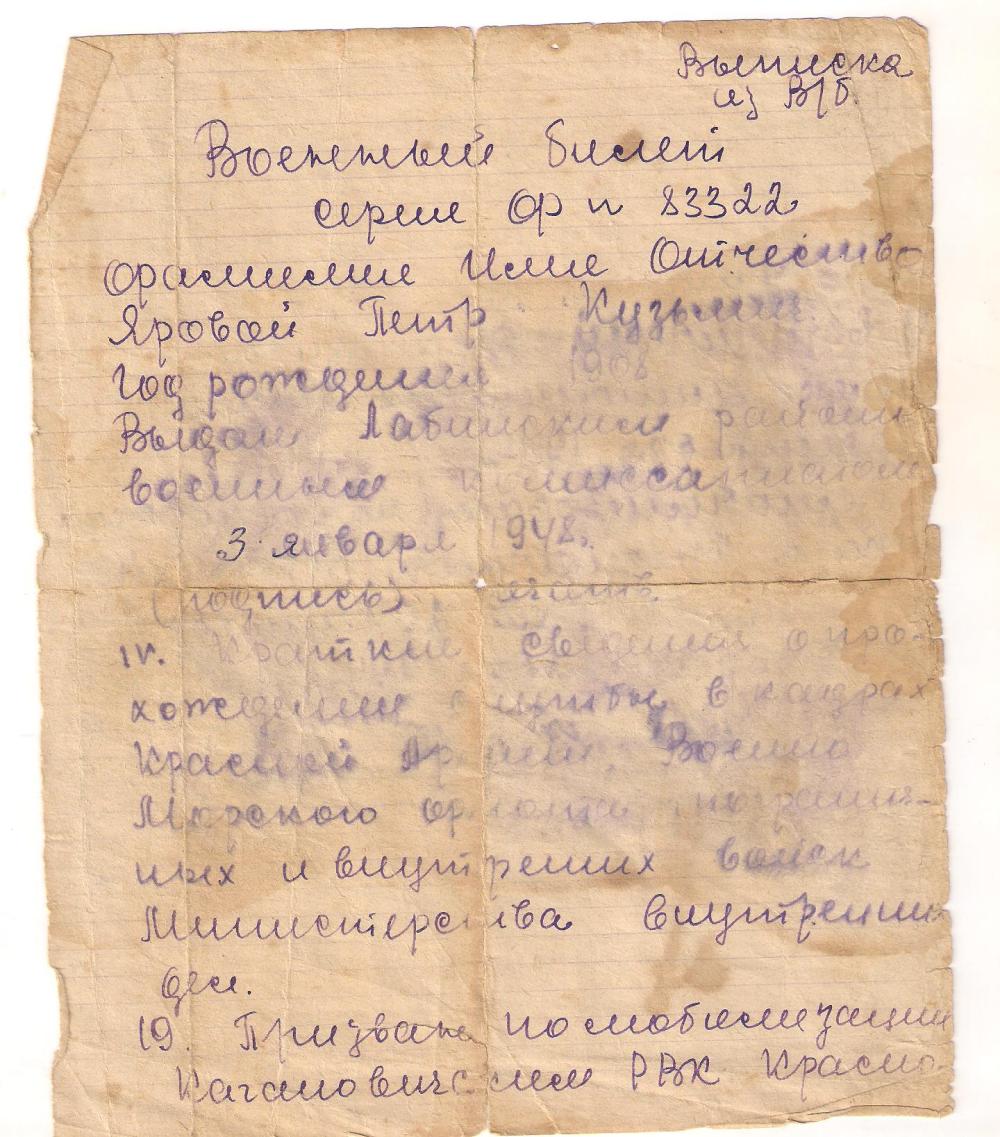 Выписка
из В/б.
Военный билет
серие ОР n 83322
Фамилие Имие Отчество
Яровой Петр Кузьмич
Год рождения 1908
Выдан Лабинским районн
военным комиссариатом
3 января 1948.
(подпись) печать
IV. Краткие сведения о про-
хождении службы в кадрах
Красной Армии, Военно
Морского флота погранич-
ных и внутренних войск
Министерства внутренних
дел.
19. Призван по мобилизации
Кагановичским РВК Красно